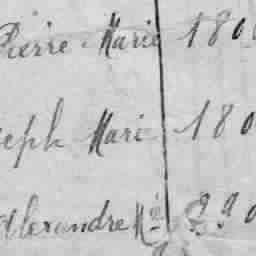 Pierre Marie 180
seph Marie 180
Alexandre Mie 290